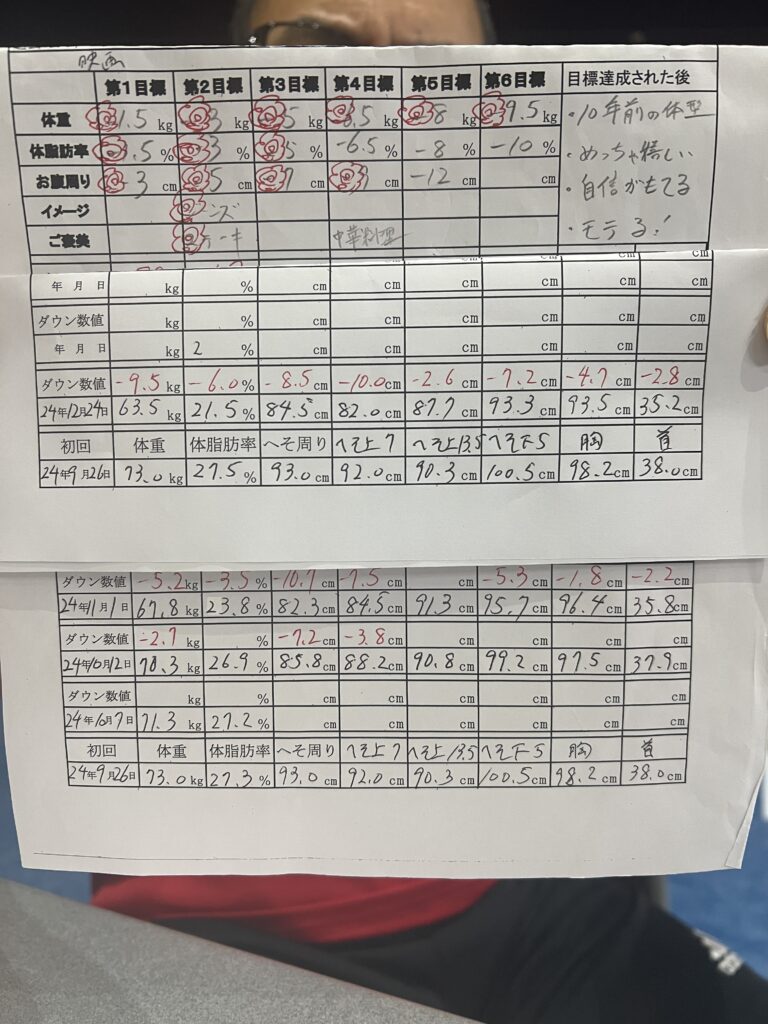 映画
第1目標 第2目標 第3目標 第4目標 第5目標 第6目標 目標達成された後
体重 1.5 kg 3 kg 5 kg 6.5 kg 8 kg 9.5 kg ・10年前の体型
体脂肪率 .5 % 3 % 5 % -6.5 % -8 % -10 % ・めっちゃ嬉しい
お腹周り -3 cm 5 cm 7 cm cm -12 cm cm ・自信がもてる
イメージ ・モテる!
ご褒美 ーキ 中華料理
年 月 日 kg % cm cm cm cm cm cm
ダウン数値 kg % cm cm cm cm cm cm
年 月 日 kg 2 % cm cm cm cm cm cm
ダウン数値 -9.5 kg -6.0 % -8.5 cm -10.0 cm -2.6 cm -7.2 cm -4.7 cm -2.8 cm
24年12月24日 63.5 kg 21.5 % 84.5 cm 82.0 cm 87.7 cm 93.3 cm 93.5 cm 35.2 cm
初回 体重 体脂肪率 へそ周り へそ上7 へそ上13.5 へそ下5 胸 首
24年9月26日 73.0 kg 27.5 % 93.0 cm 92.0 cm 90.3 cm 100.5 cm 98.2 cm 38.0 cm
ダウン数値 -5.2 kg -3.5 % -10.7 cm -7.5 cm cm -5.3 cm -1.8 cm -2.2 cm
24年11月1日 67.8 kg 23.8 % 82.3 cm 84.5 cm 91.3 cm 95.7 cm 96.4 cm 35.8 cm
ダウン数値 -2.7 kg % -7.2 cm -3.8 cm cm cm cm cm
70.3 kg 26.9 % 85.8 cm 88.2 cm 90.8 cm 99.2 cm 97.5 cm 37.9 cm
ダウン数値 kg % cm cm cm cm cm cm
24年10月7日 71.3 kg 27.2 % cm cm cm cm cm cm
初回 体重 体脂肪率 へそ周り へそ上7 へそ上13.5 へそ下5 胸 首
24年9月26日 73.0 kg 27.3 % 93.0 cm 92.0 cm 90.3 cm 100.5 cm 98.2 cm 38.0 cm